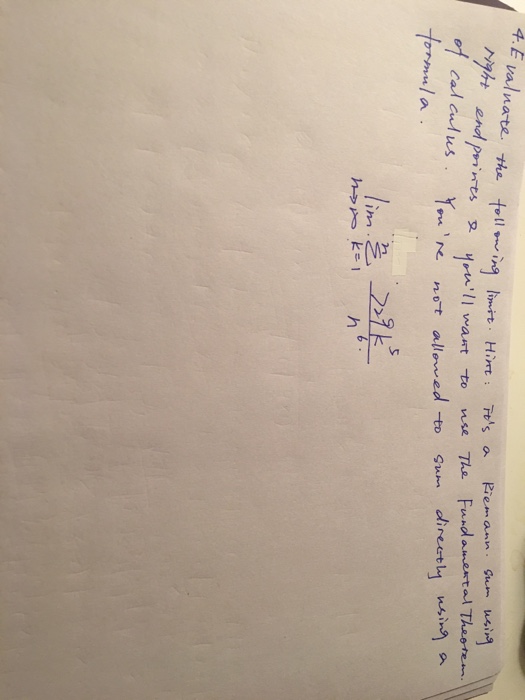 4. Evaluate the following limit. Hint: It's a Riemann. sum using
right endpoints & you'll want to use The Fundamental Theorem.
of calculus. You're not allowed to sum directly using a
formula.
lim n→∞ n Σ k=1 729k⁵ / n⁶.